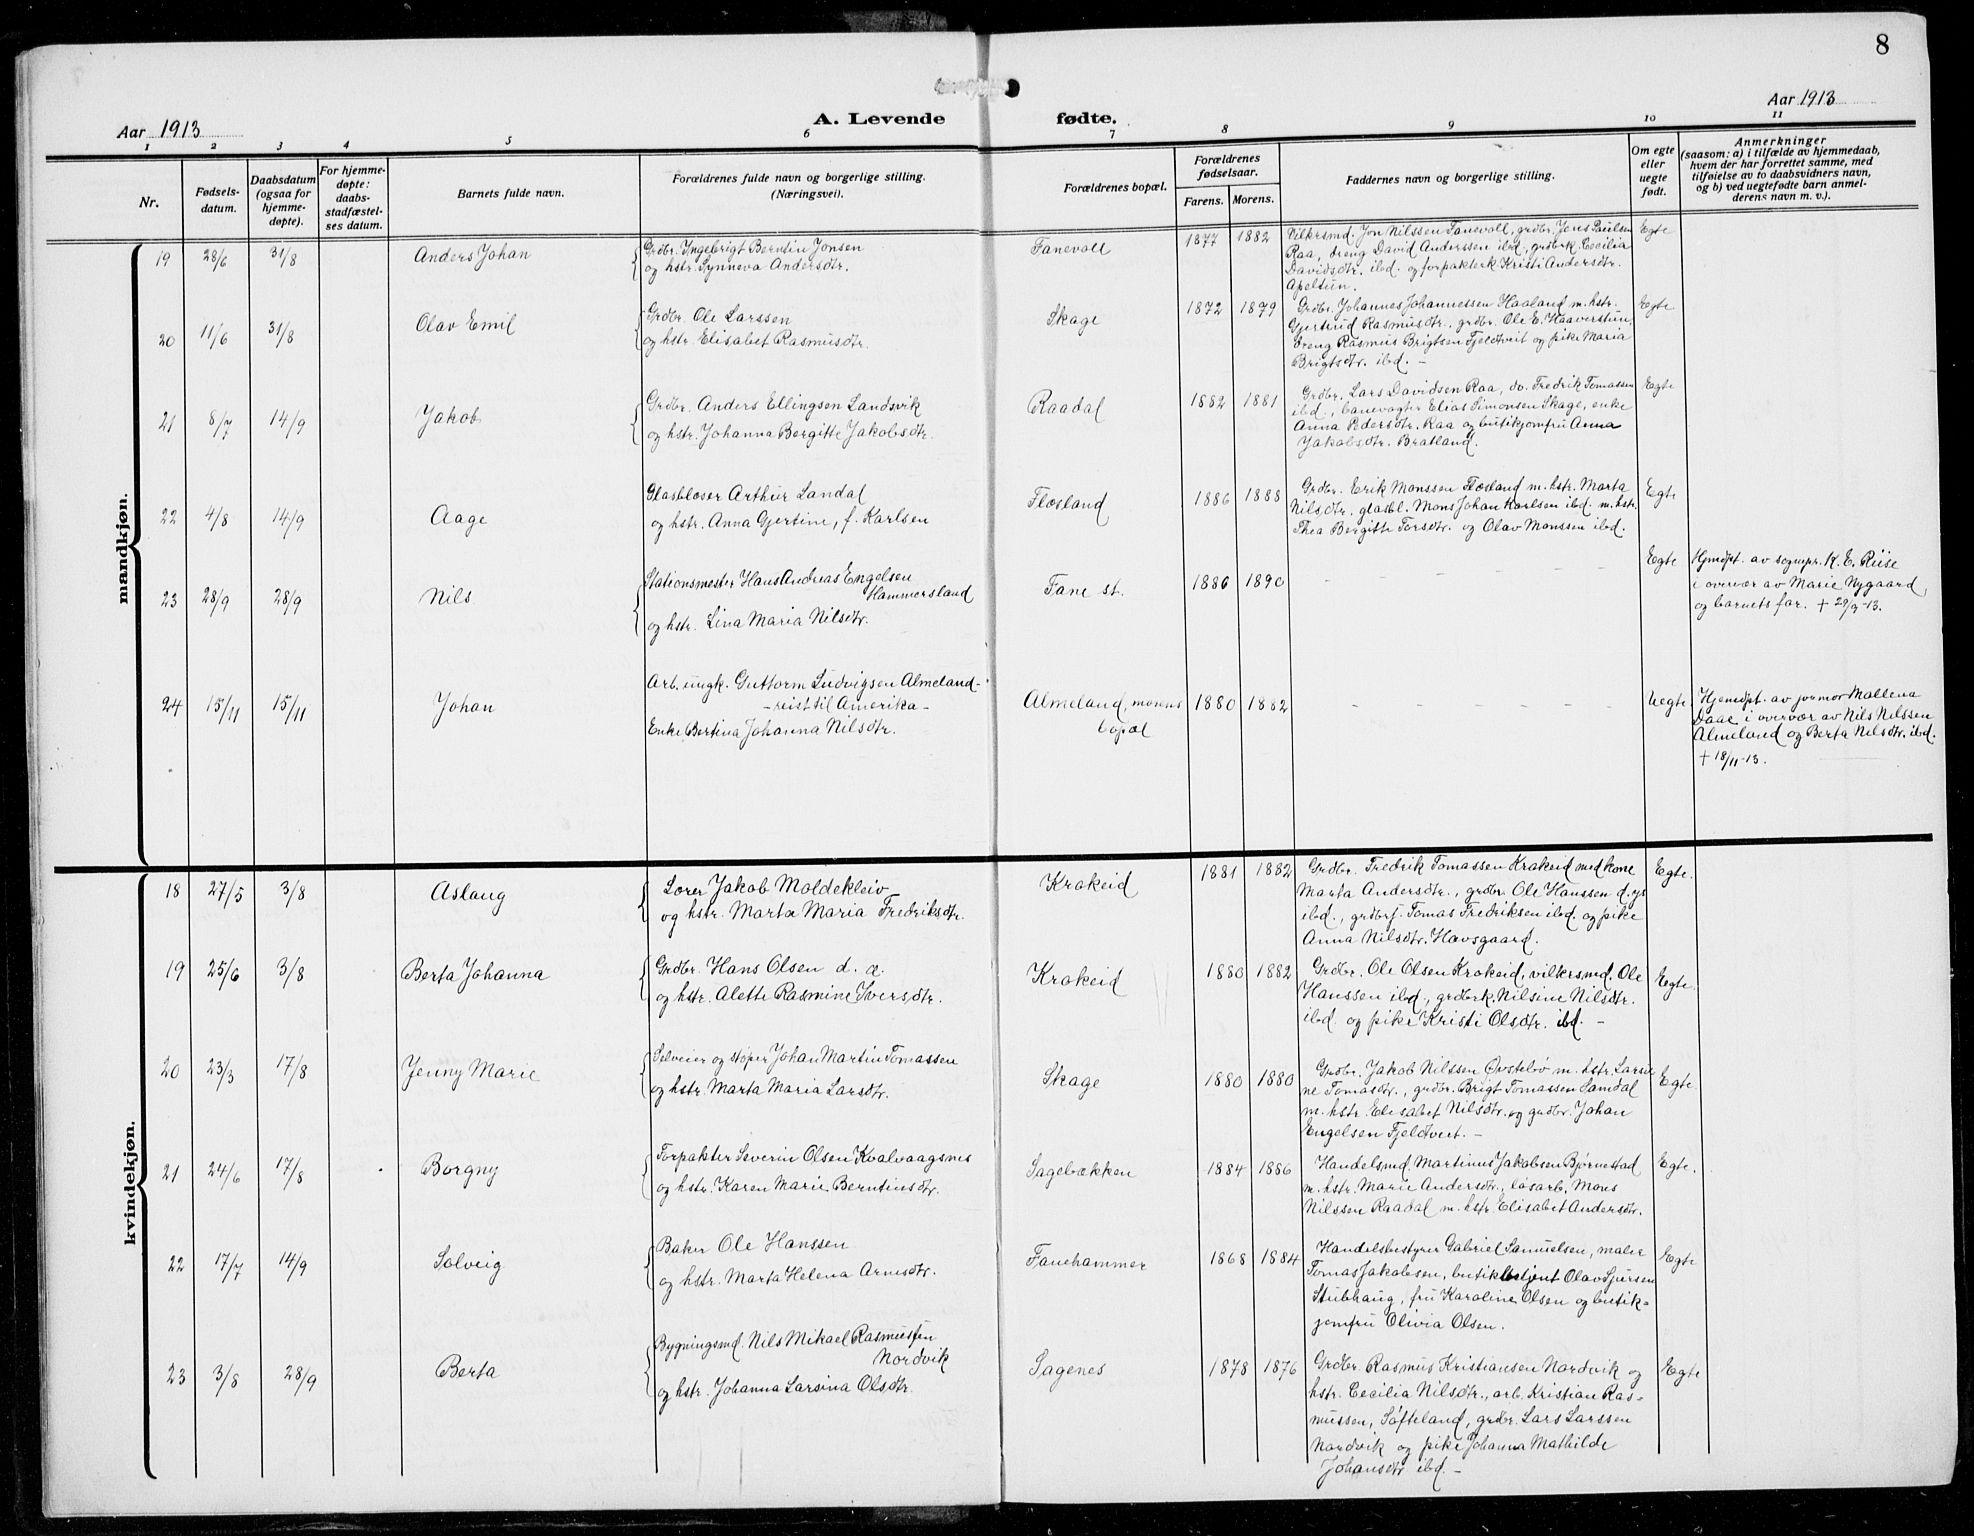 8
Aar 1913
A. Levende fødte.
Aar 1913
1 2 3 4 5 6 7 8 9 10 11
Nr.
Fødsels-
datum.
Daabsdatum
(ogsaa for
hjemme-
døpte).
For hjemme-
døpte:
daabs-
stadfæstel-
ses datum.
Barnets fulde navn.
Forældrenes fulde navn og borgerlige stilling.
(Næringsvei).
Forældrenes bopæl.
Forældrenes
fødselsaar.
Farens. Morens.
Faddernes navn og borgerlige stilling.
Om egte
eller
uegte
født.
Anmerkninger
(saasom: a) i tilfælde av hjemmedaab,
hvem der har forrettet samme, med
tilføielse av to daabsvidners navn,
og b) ved uegtefødte barn anmel-
derens navn m. v.).
mandkjøn.
19 28/6 31/8 Anders Johan
Grdbr. Ingebrigt Berntin Jonsen
og hstr. Synneva Andersdtr.
Fanevoll 1877 1882
Vilkrsmd. Jon Nilssen Fanevoll, grdbr. Jens Paulsen
Raa, dreng David Anderssen ibd., grdbrk. Cecilia
Davidsdtr. ibd. og forpakterk. Kristi Andersdtr.
Apeltun.
Egte
20 11/6 31/8 Olav Emil
Grdbr. Ole Larssen
og hstr. Elisabet Rasmusdtr.
Skage 1872 1879
Grdbr. Johannes Johannessen Haaland m. hstr.
Gjertrud Rasmusdtr., grdbr. Ole E. Haaverstun,
dreng Rasmus Brigtsen Fjeldtveit og pike Maria
Brigtsdtr. ibd. –
Egte
21 8/7 14/9 Jakob
Grdbr. Anders Ellingsen Landsvik
og hstr. Johanna Bergitte Jakobsdtr.
Raadal 1882 1881
Grdbr. Lars Davidsen Raa, do. Fredrik Tomassen
ibd., banevogter Elias Simonsen Skage, enke
Anna Pedersdtr. Raa og butikjomfru Anna
Jakobsdtr. Bratland.
Egte
22 4/8 14/9 Aage
Glasblæser Arthur Landal
og hstr. Anna Gjertine, f. Karlsen
Flesland 1886 1888
Grdbr. Erik Monssen Flesland m. hstr. Marta
Nilsdtr. glasbl. Mons Johan Karlsen ibd. m. hstr.
Thea Bergitte Torsdtr. og Olav Monssen ibd.
Egte
23 28/9 28/9 Nils
Stationsmester Hans Andreas Engelsen
Hammersland
og hstr. Lina Maria Nilsdtr.
Fane st. 1886 1890
– – – – – –
Egte
Hjmdpt. av sognepr. K. E. Riise
i overvær av Marie Nygaard
og barnets far. + 29/9-13.
24 15/11 15/11 Johan
Arb. ungk. Guttorm Ludvigsen Almeland –
– reist til Amerika –
Enke Bertina Johanna Nilsdtr.
Almeland, morens
bopæl
1880 1882
– – – – – –
Uegte
Hjemdpt. av jormor Mallena
Daae i overvær av Nils Nilssen
Almeland og Berta Nilsdtr. ibd.
+ 18/11-13.
kvindekjøn.
18 27/5 3/8 Aslaug
Lærer Jakob Moldekleiv
og hstr. Marta Maria Fredriksdtr.
Krokeid 1881 1882
Grdbr. Fredrik Tomassen Krokeid med kone
Marta Andersdtr., grdbr. Ole Hanssen d. ys
ibd., grdbrf. Tomas Fredriksen ibd. og pike
Anna Nilsdtr. Havsgaard.
Egte.
19 25/6 3/8 Berta Johanna
Grdbr. Hans Olsen d. æ.
og hstr. Alette Rasmine Iversdtr.
Krokeid 1880 1882
Grdbr. Ole Olsen Krokeid, vilkersmd. Ole
Hanssen ibd., grdbrk. Nilsine Nilsdtr.
ibd. og pike Kristi Olsdtr. ibd. –
Egte.
20 23/3 17/8 Jenny Marie
Selveier og støper Johan Martin Tomassen
og hstr. Marta Maria Larsdtr.
Skage 1880 1880
Grdbr. Jakob Nilssen Øvstebø m. hstr. Larsi
ne Tomasdtr., grdbr. Brigt Tomassen Samdal
m. hstr. Elisabet Nilsdtr. og grdbr. Johan
Engelsen Fjeldtveit. –
Egte.
21 24/6 17/8 Borgny
Forpakter Severin Olsen Kvalvaagsnes
og hstr. Karen Marie Berntinsdtr.
Sagebækken 1884 1886
Handelsmd. Martinus Jakobsen Bjørnestad
m. hstr. Marie Andersdtr., løsarb. Mons
Nilssen Raadal m. hstr. Elisabet Andersdtr.
Egte.
22 17/7 14/9 Solveig
Baker Ole Hanssen
og hstr. Marta Helena Arnesdtr.
Fanehammer 1868 1884
Handelsbestyrer Gabriel Samuelsen, maler
Tomas Jakobsen, butikbetjent Olav Sjursen
Stubhaug, fru Karoline Olsen og butik-
jomfru Olivia Olsen.
Egte
23 3/8 28/9 Berta
Bygningsmd. Nils Mikael Rasmussen
Nordvik
og hstr. Johanna Larsina Olsdtr.
Sagenes 1878 1876
Grdbr. Rasmus Kristiansen Nordvik og
hstr. Cecilia Nilsdtr., arb. Kristian Ras-
mussen, Søfteland, grdbr. Lars Larssen
Nordvik og pike Johanna Mathilde
Johansdtr ibd. –
Egte